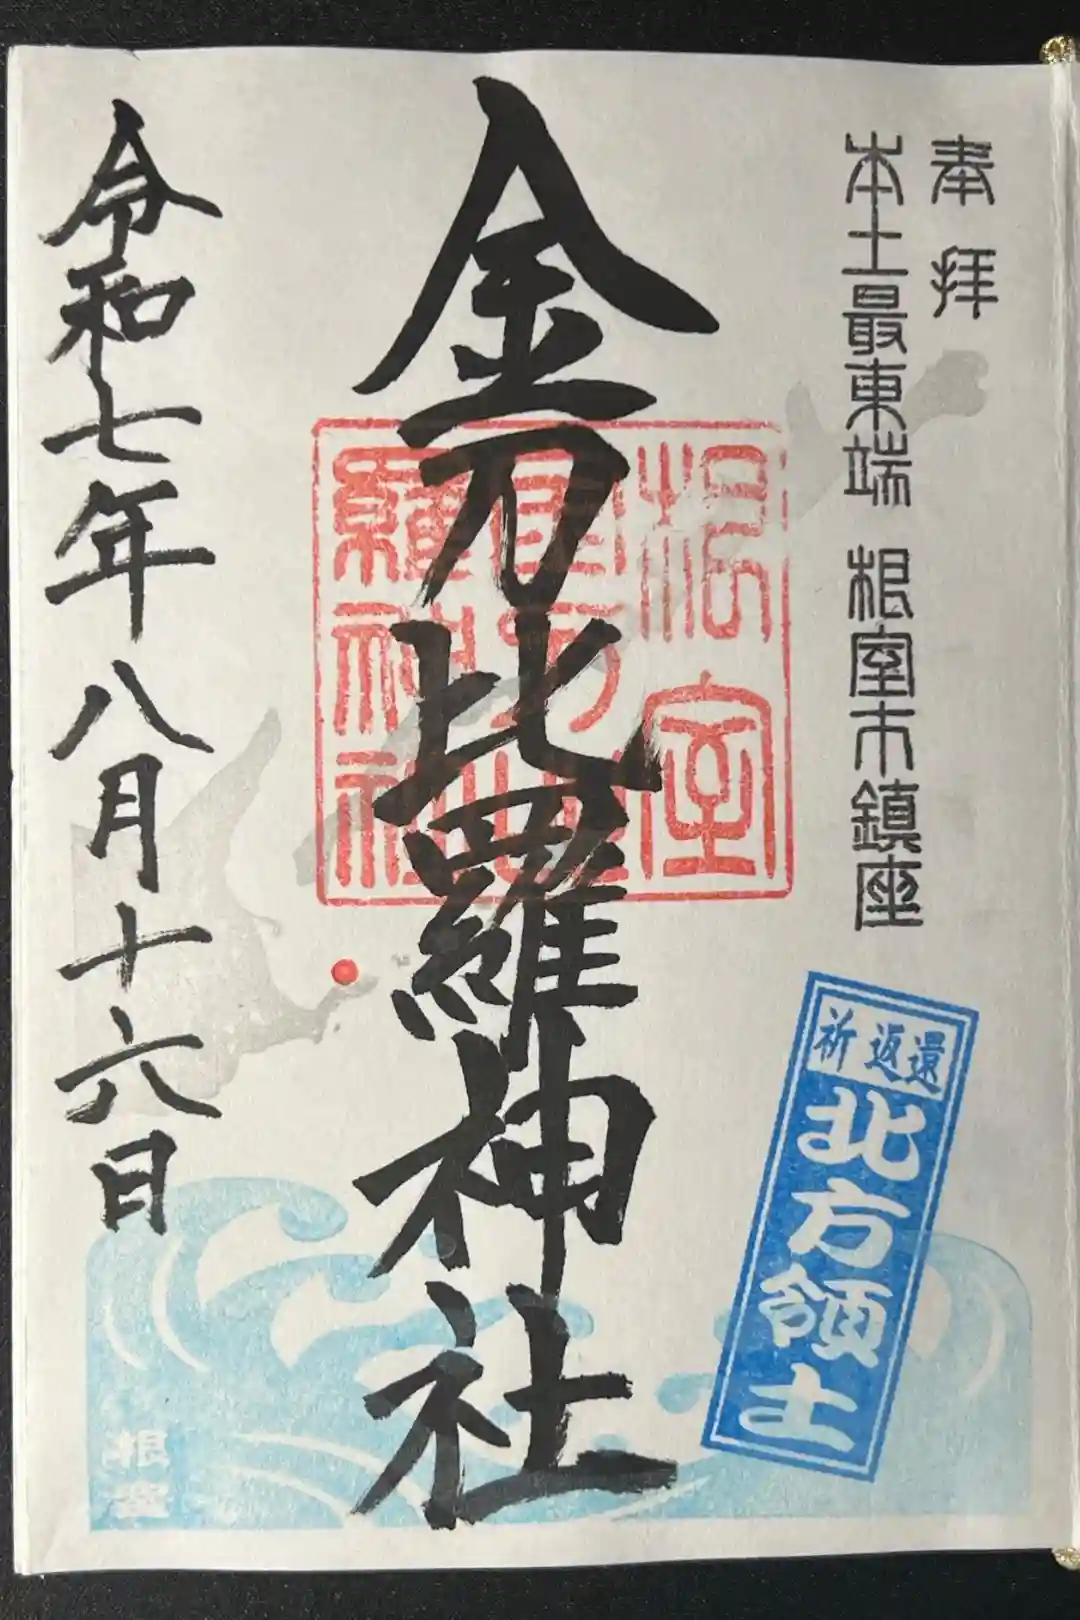 奉拝
本土最東端 根室市鎮座
根室
金刀比
羅神社
金刀比羅神社
令和七年八月十六日
祈 返還
北方領土
根室